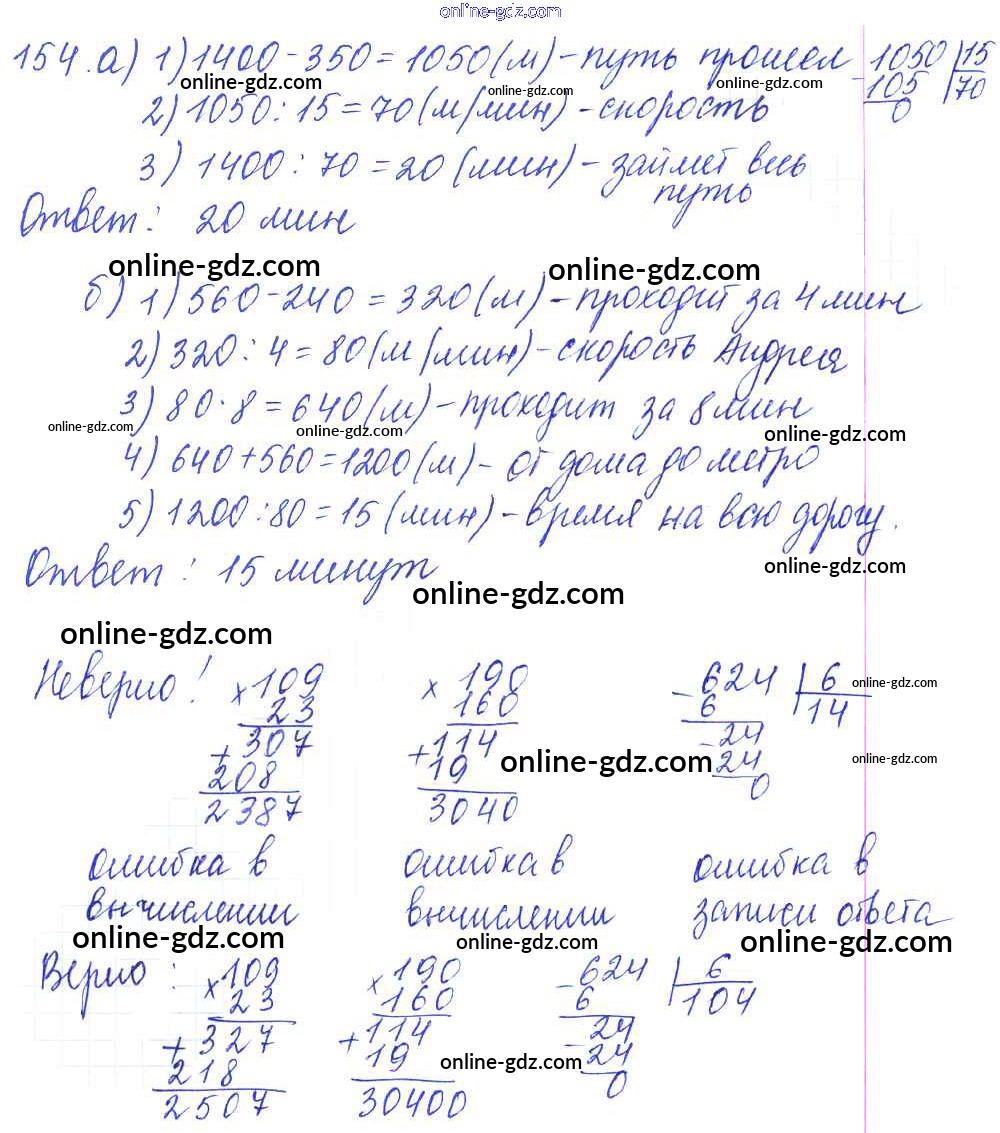 online-gdz.com
154. а) 1) 1400 - 350 = 1050 (м) - путь прошел
1050 | 15
- 105 70
0
online-gdz.com online-gdz.com online-gdz.com
2) 1050 : 15 = 70 (м/мин) - скорость
3) 1400 : 70 = 20 (мин) - займет весь
путь
Ответ: 20 мин
online-gdz.com online-gdz.com
б) 1) 560 - 240 = 320 (м) - проходит за 4 мин
2) 320 : 4 = 80 (м/мин) - скорость Андрея
3) 80 · 8 = 640 (м) - проходит за 8 мин
online-gdz.com online-gdz.com online-gdz.com
4) 640 + 560 = 1200 (м) - от дома до метро
5) 1200 : 80 = 15 (мин) - время на всю дорогу.
online-gdz.com
Ответ: 15 минут
online-gdz.com
online-gdz.com
Неверно! × 109 × 190 - 624 | 6
online-gdz.com
23 160 6 14
+ 307 + 114 - 24
208 19 24
online-gdz.com online-gdz.com
2387 3040 0
ошибка в ошибка в ошибка в
вычислении вычислении записи ответа
online-gdz.com online-gdz.com online-gdz.com
Верно: × 109 × 190 - 624 | 6
23 160 6 104
+ 327 + 114 - 24
218 19 24
online-gdz.com
2507 30400 0